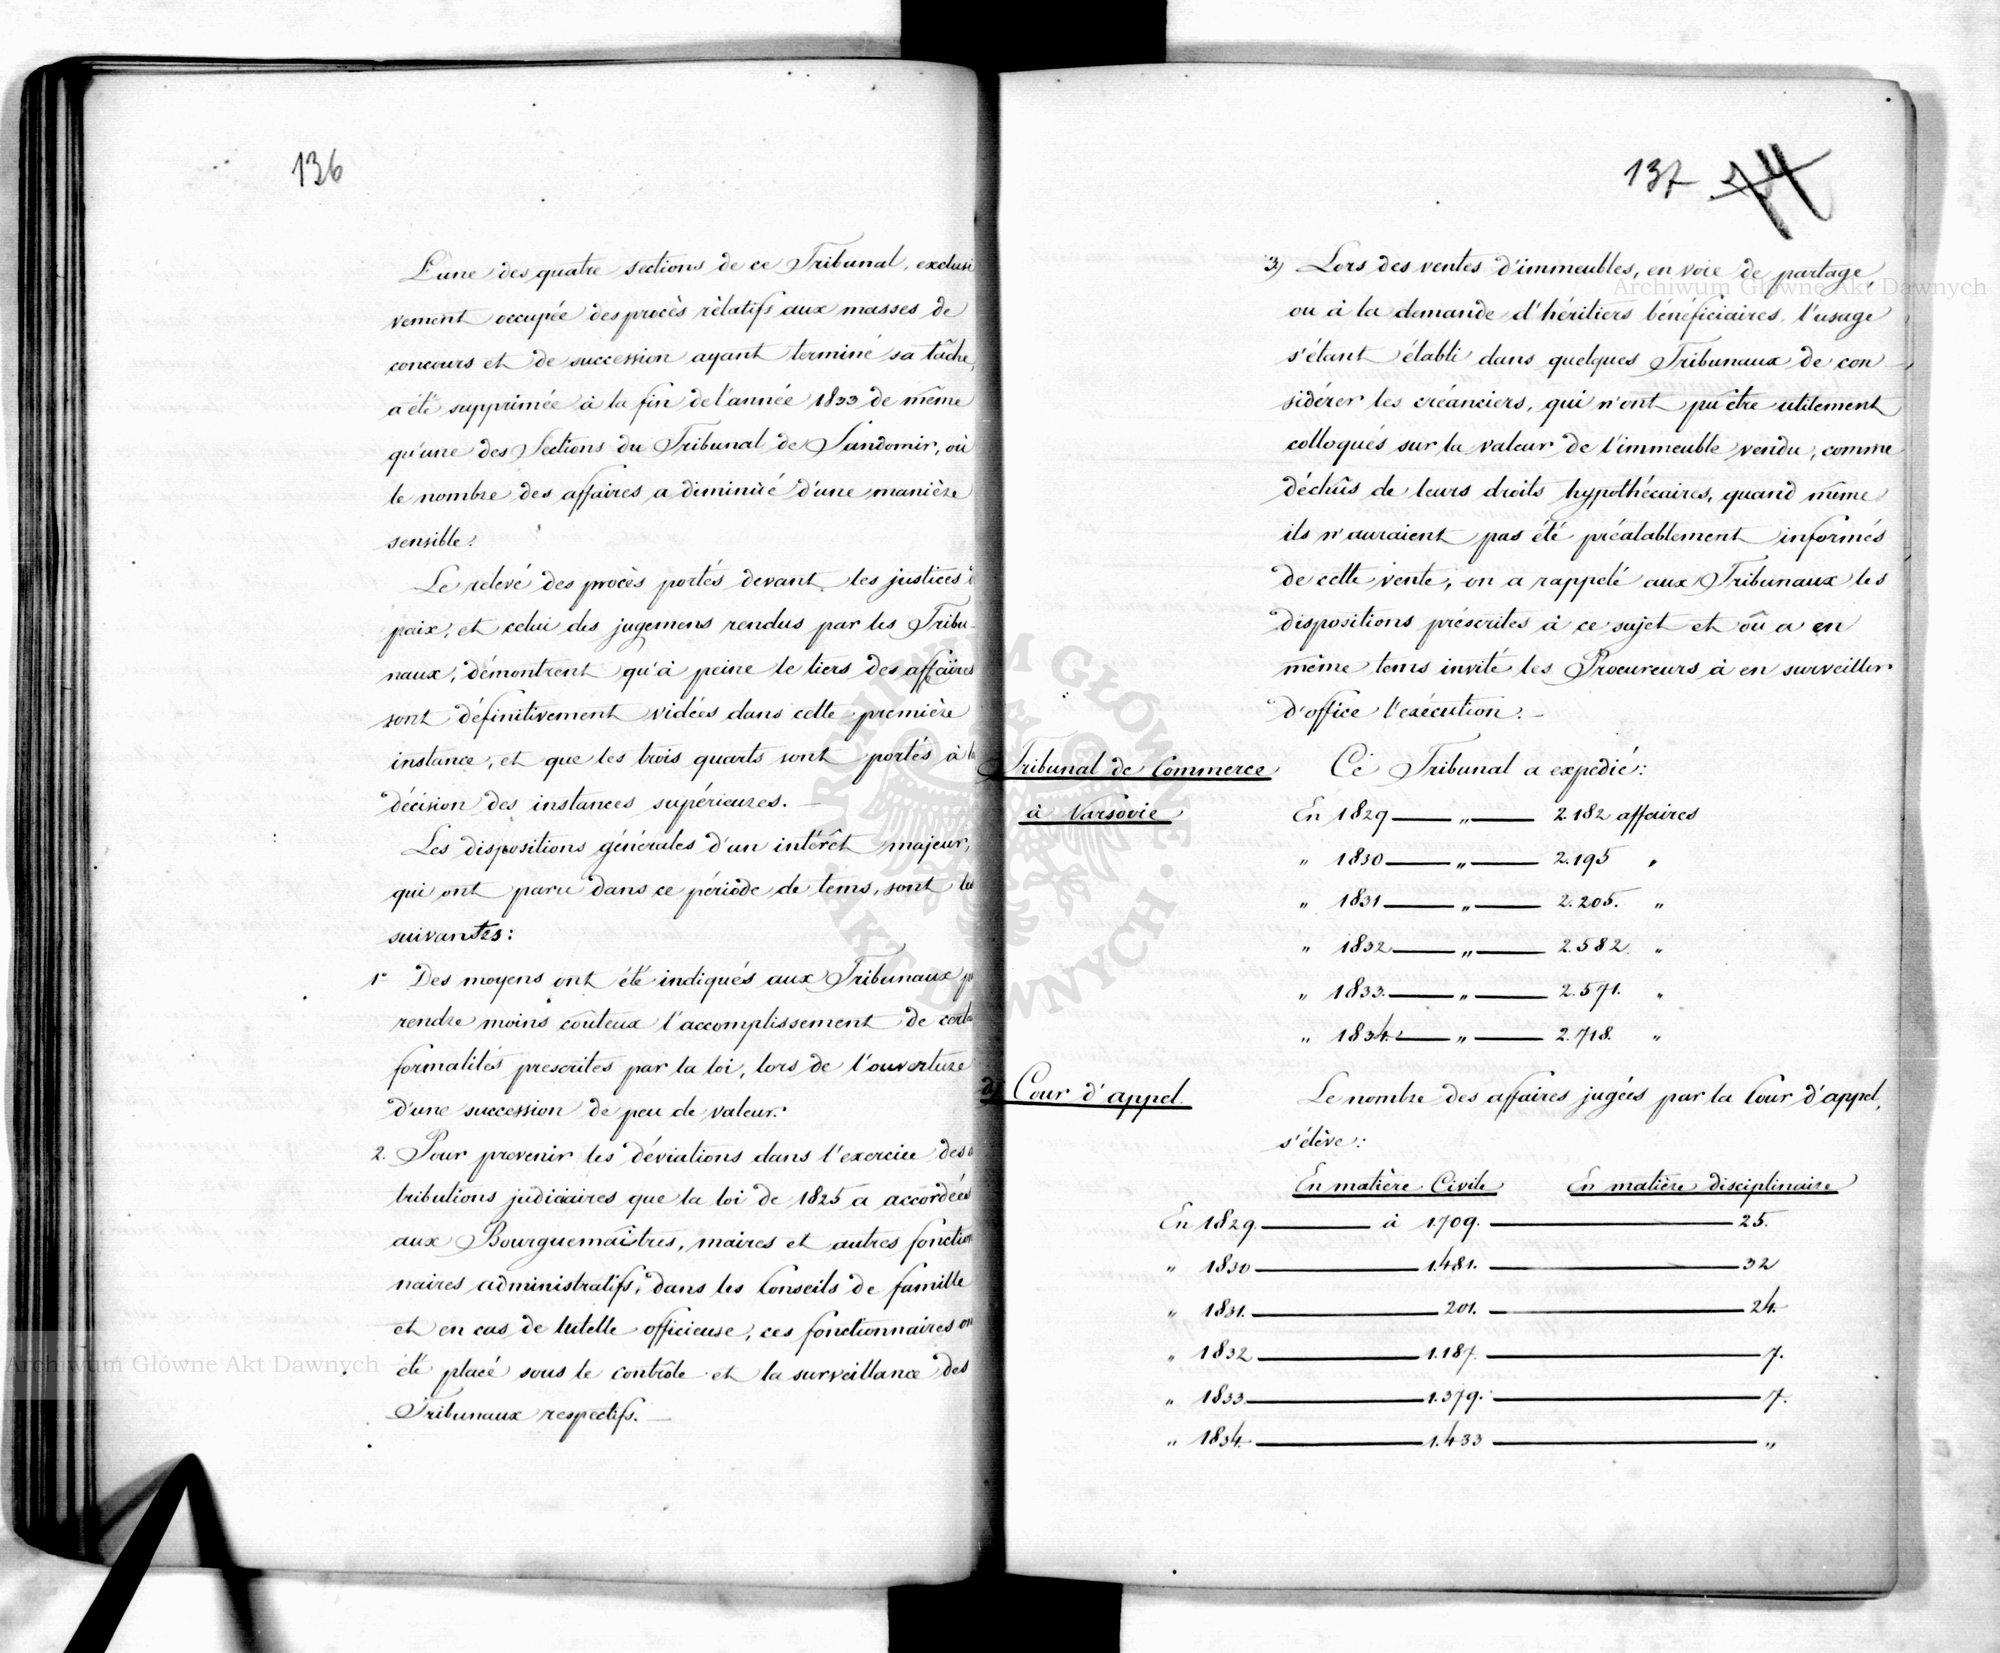 136
L'une des quatre sections de ce Tribunal, exclusi
vement occupée des procès rélatifs aux masses de
concours et de succession ayant terminé sa tâche,
a été supprimée à la fin de l'année 1833 de même
qu'une des Sections du Tribunal de Sandomir, où
le nombre des affaires a diminué d'une manière
sensible.
Le relevé des procès portés devant les justices d
paix, et celui des jugemens rendus par les Tribu-
naux, démontrent qu'à peine le tiers des affaires
sont définitivement vidées dans cette première
instance, et que les trois quarts sont portés à l
décision des instances supérieures. —
Les dispositions générales d'un intérêt majeur,
qui ont paru dans ce période de tems, sont les
suivantes:
1° Des moyens ont été indiqués aux Tribunaux p
rendre moins couteux l'accomplissement de certa
formalités prescrites par la loi, lors de l'ouverture
d'une succession de peu de valeur.
2. Pour prevenir les déviations dans l'exercice des a
tributions judiciaires que la loi de 1825 a accordées
aux Bourguemaîtres, maires et autres fonction
naires administratifs, dans les Conseils de famille
et en cas de tutelle officieuse, ces fonctionnaires on
été placé sous le contrôle et la surveillance des
Tribunaux respectifs. —
137 74
3) Lors des ventes d'immeubles, en voie de partage,
ou à la demande d'héritiers bénéficiaires, l'usage
s'étant établi dans quelques Tribunaux de con-
sidérer les créanciers, qui n'ont pu être utilement
colloqués sur la valeur de l'immeuble vendu, comme
déchûs de leurs droits hypothécaires, quand même
ils n'auraient pas été préalablement informés
de cette vente, on a rappelé aux Tribunaux les
dispositions préscrites à ce sujet et on a en
même tems invité les Procureurs à en surveiller
d'office l'exécution. —
Tribunal de Commerce
à Varsovie
Ce Tribunal a expedié:
En 1829 — „ — 2.182 affaires
„ 1830 — „ — 2.195 „
„ 1831 — „ — 2.205. „
„ 1832 — „ — 2.582. „
„ 1833. — „ — 2.571. „
„ 1834. — „ — 2.718. „
d) Cour d'appel.
Le nombre des affaires jugées par la Cour d'appel,
s'élève:
En matière Civile En matière disciplinaire
En 1829. — à 1.709. — 25.
„ 1830 — 1.481. — 32
„ 1831. — 201. — 24.
„ 1832 — 1.187. — 7.
„ 1833. — 1.379. — 7.
„ 1834. — 1.433 — „
Archiwum Główne Akt Dawnych
Archiwum Główne Akt Dawnych
ARCHIWUM GŁÓWNE · AKT DAWNYCH ·